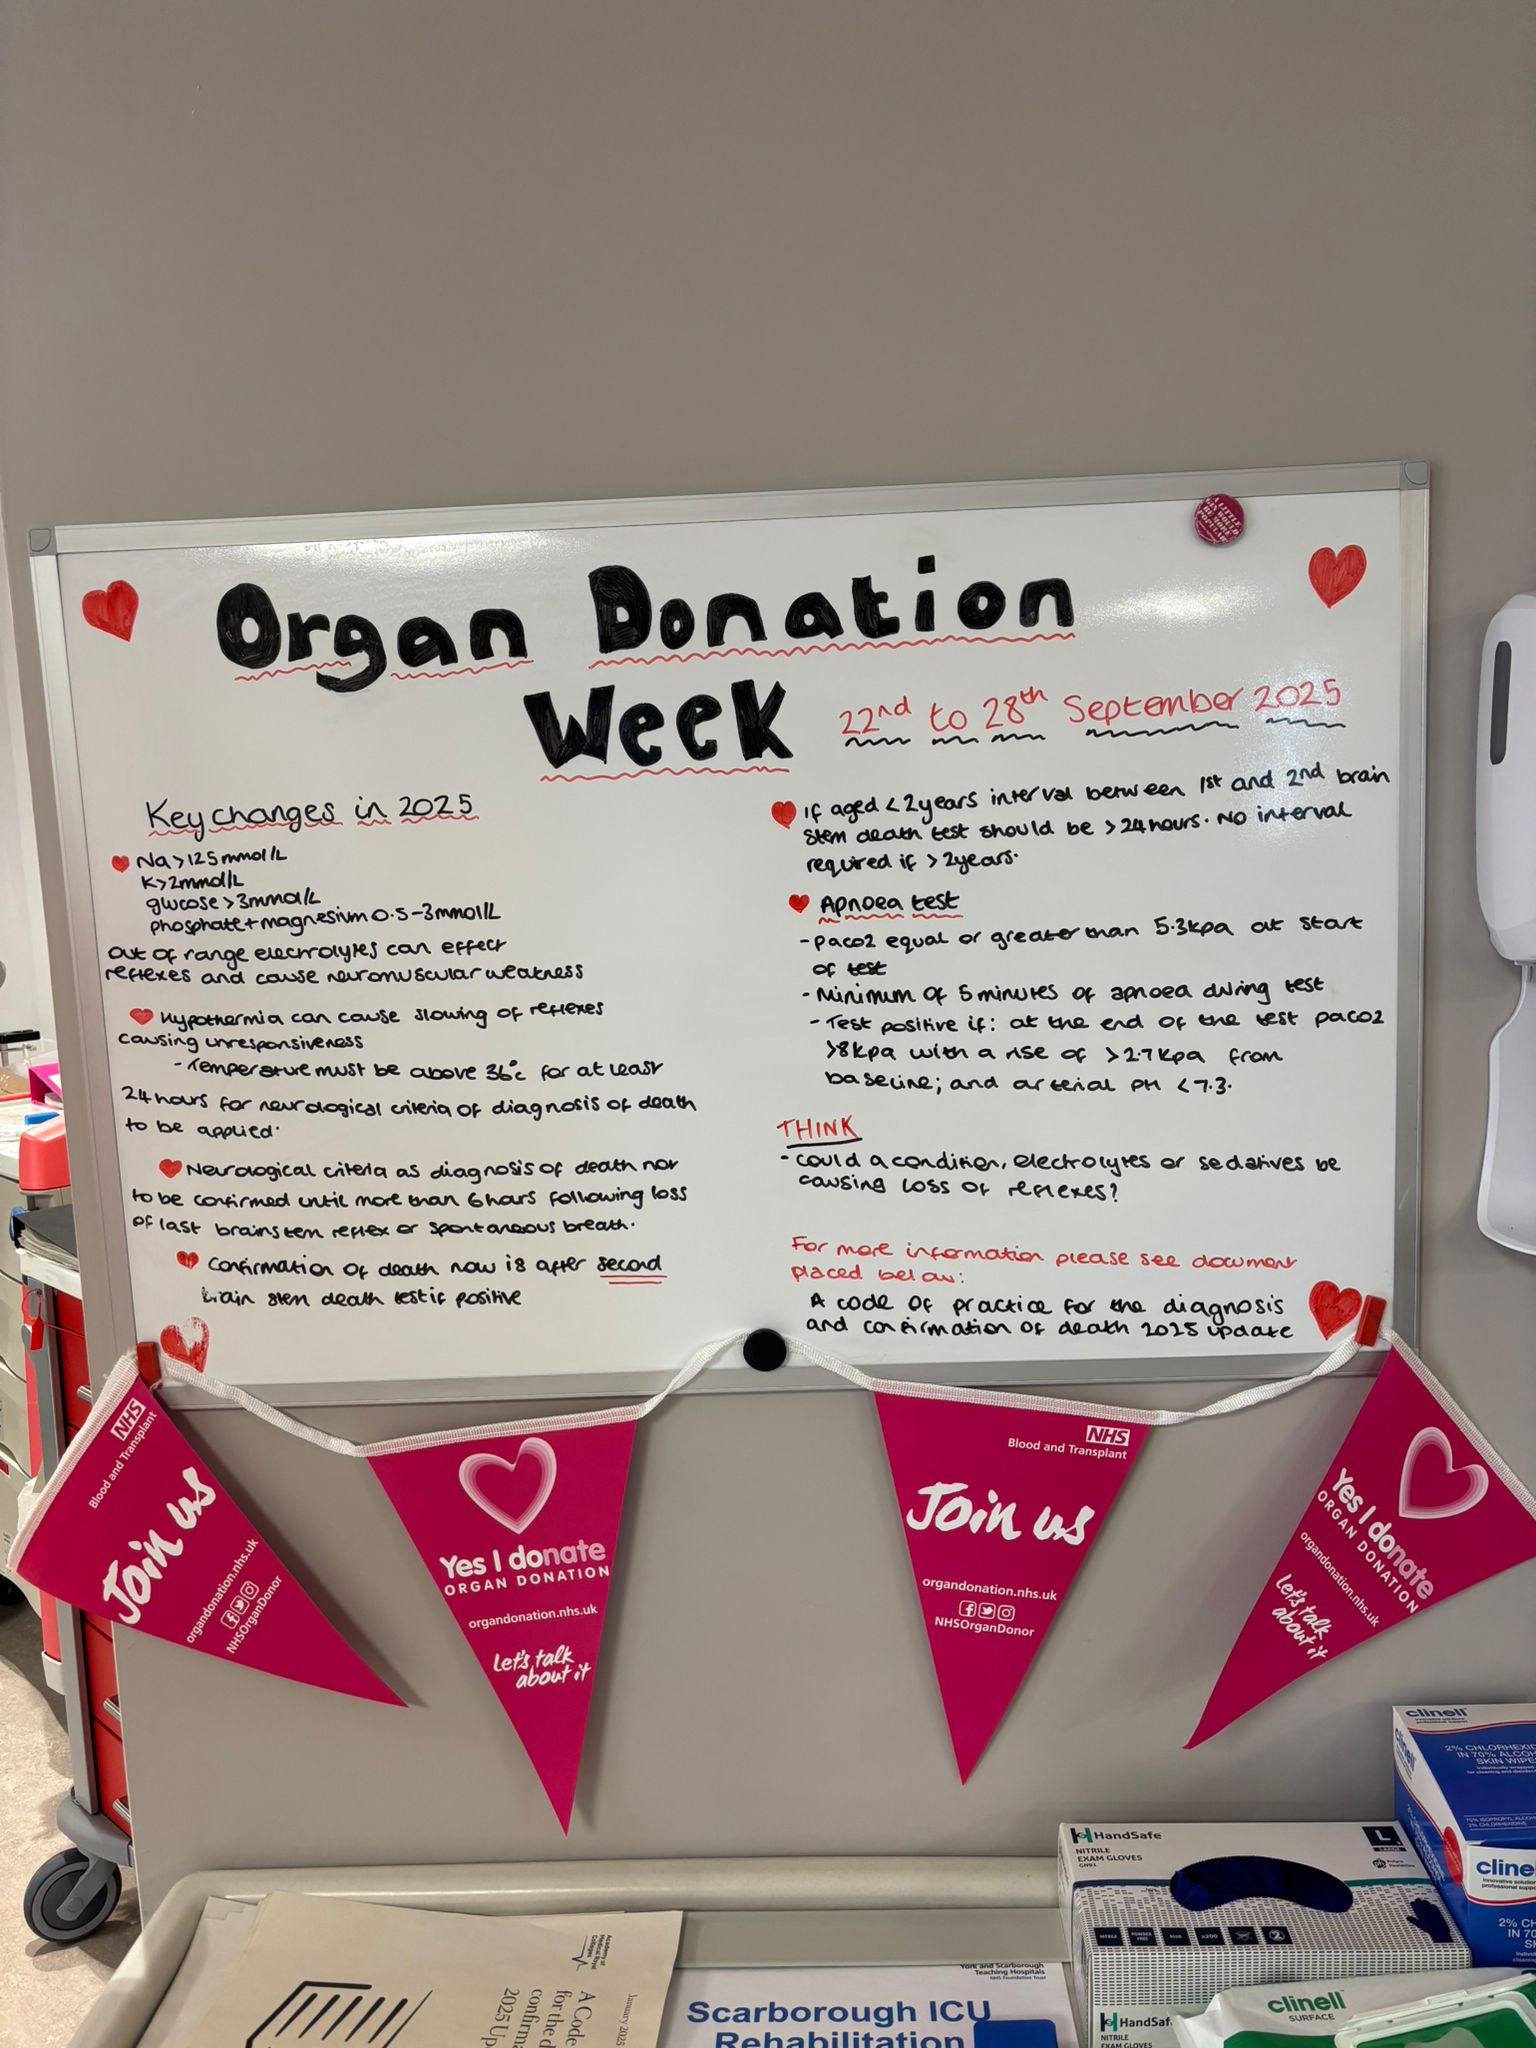 A LITTLE
GIN WOULD
BE MORE
POPULAR
Organ Donation
Week
22nd to 28th September 2025
Key changes in 2025
Na >125mmol/L
K>2mmol/L
glucose >3mmol/L
phosphate + magnesium 0.5-3mmol/L
out of range electrolytes can effect
reflexes and cause neuromuscular weakness
Hypothermia can cause slowing of reflexes
causing unresponsiveness
- Temperature must be above 36°c for at least
24 hours for neurological criteria of diagnosis of death
to be applied.
Neurological criteria as diagnosis of death nor
to be confirmed until more than 6 hours following loss
of last brainstem reflex or spontaneous breath.
Confirmation of death now is after second
brain stem death test if positive
If aged < 2years interval between 1st and 2nd brain
stem death test should be > 24 hours. No interval
required if > 2years.
Apnoea test
- paco2 equal or greater than 5.3kpa at start
of test
- Minimum of 5 minutes of apnoea during test
- Test positive if: at the end of the test paco2
>8kpa with a rise of >2.7kpa from
baseline; and arterial PH <7.3.
THINK
- could a condition, electrolytes or sedatives be
causing loss of reflexes?
For more information please see document
placed below:
A code of practice for the diagnosis
and confirmation of death 2025 update
NHS
Blood and Transplant
Join us
organdonation.nhs.uk
NHSOrganDonor
Yes I donate
ORGAN DONATION
organdonation.nhs.uk
Let's talk
about it
NHS
Blood and Transplant
Join us
organdonation.nhs.uk
NHSOrganDonor
Yes I donate
ORGAN DONATION
organdonation.nhs.uk
Let's talk
about it
clinell
2% CHLORHEXID
IN 70% ALCOH
SKIN WIPE
clinell
cline
2% CH
IN 70
HandSafe
NITRILE
EXAM GLOVES
GN91
L
LARGE
NITRILE
POWDER FREE
BLUE
x200
2
HandSaf
NITRILE
EXAM GLOVES
clinell
SURFACE
Academy of
Medical Royal
Colleges
January 2025
A Code
for the d
confirma
2025 Up
York and Scarborough
Teaching Hospitals
NHS Foundation Trust
Scarborough ICU
Rehabilitation